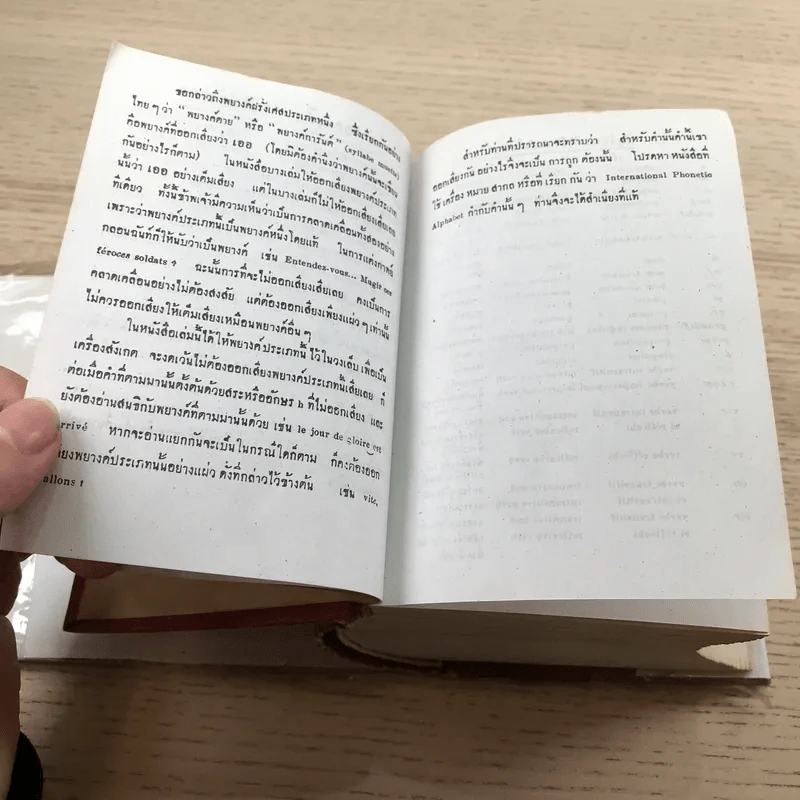 ขอกล่าวถึงพยางค์ฝรั่งเศสประเภทหนึ่ง ซึ่งเรียกกันอย่าง
ไทย ๆ ว่า "พยางค์ตาย" หรือ "พยางค์การันต์" (syllabe muette)
คือพยางค์ที่ออกเสียงว่า เออ (โดยมิต้องคำนึงว่าพยางค์นั้นจะเขียน
กันอย่างไรก็ตาม) ในหนังสือบางเล่มให้ออกเสียงพยางค์ประเภท
นั้นว่า เออ อย่างเต็มเสียง แต่ในบางเล่มก็ไม่ให้ออกเสียงเสียเลย
ทีเดียว ทั้งนี้ข้าพเจ้ามีความเห็นว่าเป็นการคลาดเคลื่อนทั้งสองอย่าง
เพราะว่าพยางค์ประเภทนี้เป็นพยางค์หนึ่งโดยแท้ ในการแต่งกาพย์
กลอนฉันท์ก็ให้นับว่าเป็นพยางค์ เช่น Entendez-vous... Mugir ces
féroces soldats ฯ ฉะนั้นการที่จะไม่ออกเสียงเสียเลย คงเป็นการ
คลาดเคลื่อนอย่างไม่ต้องสงสัย แต่ต้องออกเสียงเพียงแผ่ว ๆ เท่านั้น
ไม่ควรออกเสียงให้เต็มเสียงเหมือนพยางค์อื่น ๆ
ในหนังสือเล่มนี้ได้ให้พยางค์ประเภทนี้ ไว้ในวงเล็บ เพื่อเป็น
เครื่องสังเกต จะงดเว้นไม่ต้องออกเสียงพยางค์ประเภทนี้เสียเลย ก็
ต่อเมื่อคำที่ตามมานั้นตั้งต้นด้วยสระหรืออักษร h ที่ไม่ออกเสียง และ
ยังต้องอ่านสนธิกับพยางค์ที่ตามมานั้นด้วย เช่น le jour de gloire est
arrivé หากจะอ่านแยกกันจะเป็นในกรณีใดก็ตาม ก็คงต้องออก
เสียงพยางค์ประเภทนั้นอย่างแผ่ว ดังที่กล่าวไว้ข้างต้น เช่น vite,
allons !
สำหรับท่านที่ปรารถนาจะทราบว่า สำหรับคำนั้นคำนี้เขา
ออกเสียงกัน อย่างไรจึงจะเป็น การถูก ต้องนั้น โปรดหา หนังสือที่
ใช้ เครื่อง หมาย สากล หรือที่ เรียก กัน ว่า International Phonetic
Alphabet กำกับคำนั้น ๆ ท่านจึงจะได้สำเนียงที่แท้